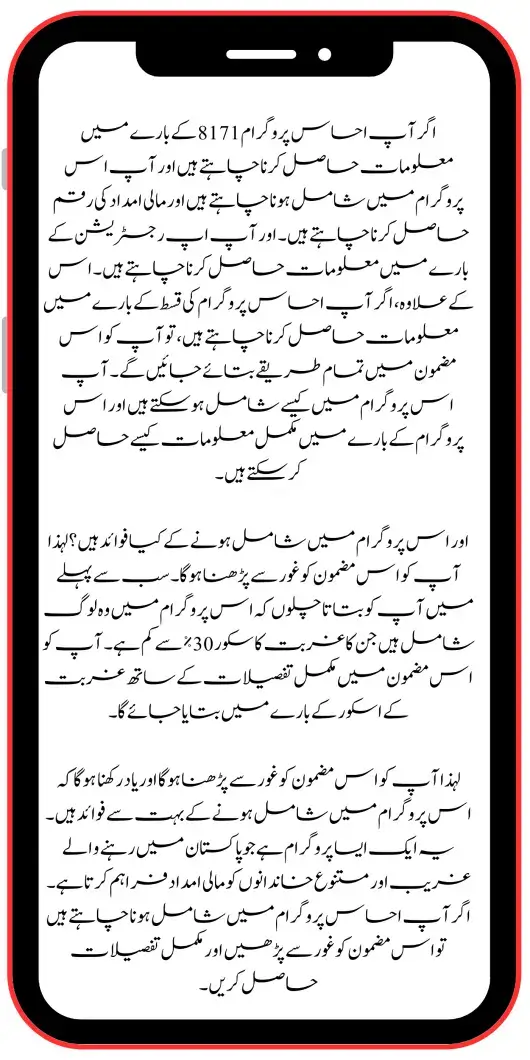 اگر آپ احساس پروگرام 8171 کے بارے میں
معلومات حاصل کرنا چاہتے ہیں اور آپ اس
پروگرام میں شامل ہونا چاہتے ہیں اور مالی امداد کی رقم
حاصل کرنا چاہتے ہیں۔ اور آپ اپ رجسٹریشن کے
بارے میں معلومات حاصل کرنا چاہتے ہیں۔ اس
کے علاوہ، اگر آپ احساس پروگرام کی قسط کے بارے میں
معلومات حاصل کرنا چاہتے ہیں، تو آپ کو اس
مضمون میں تمام طریقے بتائے جائیں گے۔ آپ
اس پروگرام میں کیسے شامل ہو سکتے ہیں اور اس
پروگرام کے بارے میں مکمل معلومات کیسے حاصل
کر سکتے ہیں۔
اور اس پروگرام میں شامل ہونے کے کیا فوائد ہیں؟ لہذا
آپ کو اس مضمون کو غور سے پڑھنا ہوگا۔ سب سے پہلے
میں آپ کو بتاتا چلوں کہ اس پروگرام میں وہ لوگ
شامل ہیں جن کا غربت کا سکور 30٪ سے کم ہے۔ آپ کو
اس مضمون میں مکمل تفصیلات کے ساتھ غربت
کے اسکور کے بارے میں بتایا جائے گا۔
لہذا آپ کو اس مضمون کو غور سے پڑھنا ہوگا اور یاد رکھنا ہوگا کہ
اس پروگرام میں شامل ہونے کے بہت سے فوائد ہیں۔
یہ ایک ایسا پروگرام ہے جو پاکستان میں رہنے والے
غریب اور متنوع خاندانوں کو مالی امداد فراہم کرتا ہے۔
اگر آپ احساس پروگرام میں شامل ہونا چاہتے ہیں
تو اس مضمون کو غور سے پڑھیں اور مکمل تفصیلات
حاصل کریں۔